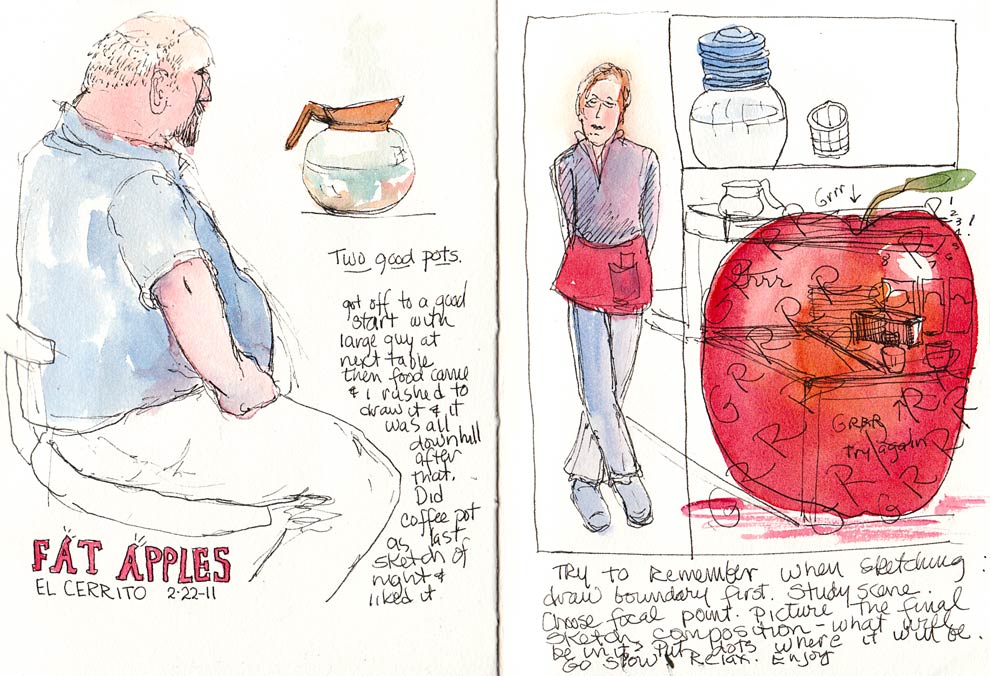 Two good pots.
got off to a good
start with
large guy at
next table
then food came
& I rushed to
draw it & it
was all
downhill
after
that.
Did
coffee pot
as last
sketch of
night &
liked it
FAT APPLES
EL CERRITO 2-22-11
Grrr ↓
1
2
3!
4
5
7
8
Grrr
R
R
R
R
R
G
R
GRRR
try again
R
R
R
G
R
G
Try to Remember when sketching :
draw boundary first. Study scene.
Choose focal point. Picture the final
sketch composition - what will
be in it? Put dots where it will be.
Go slow! Relax. Enjoy